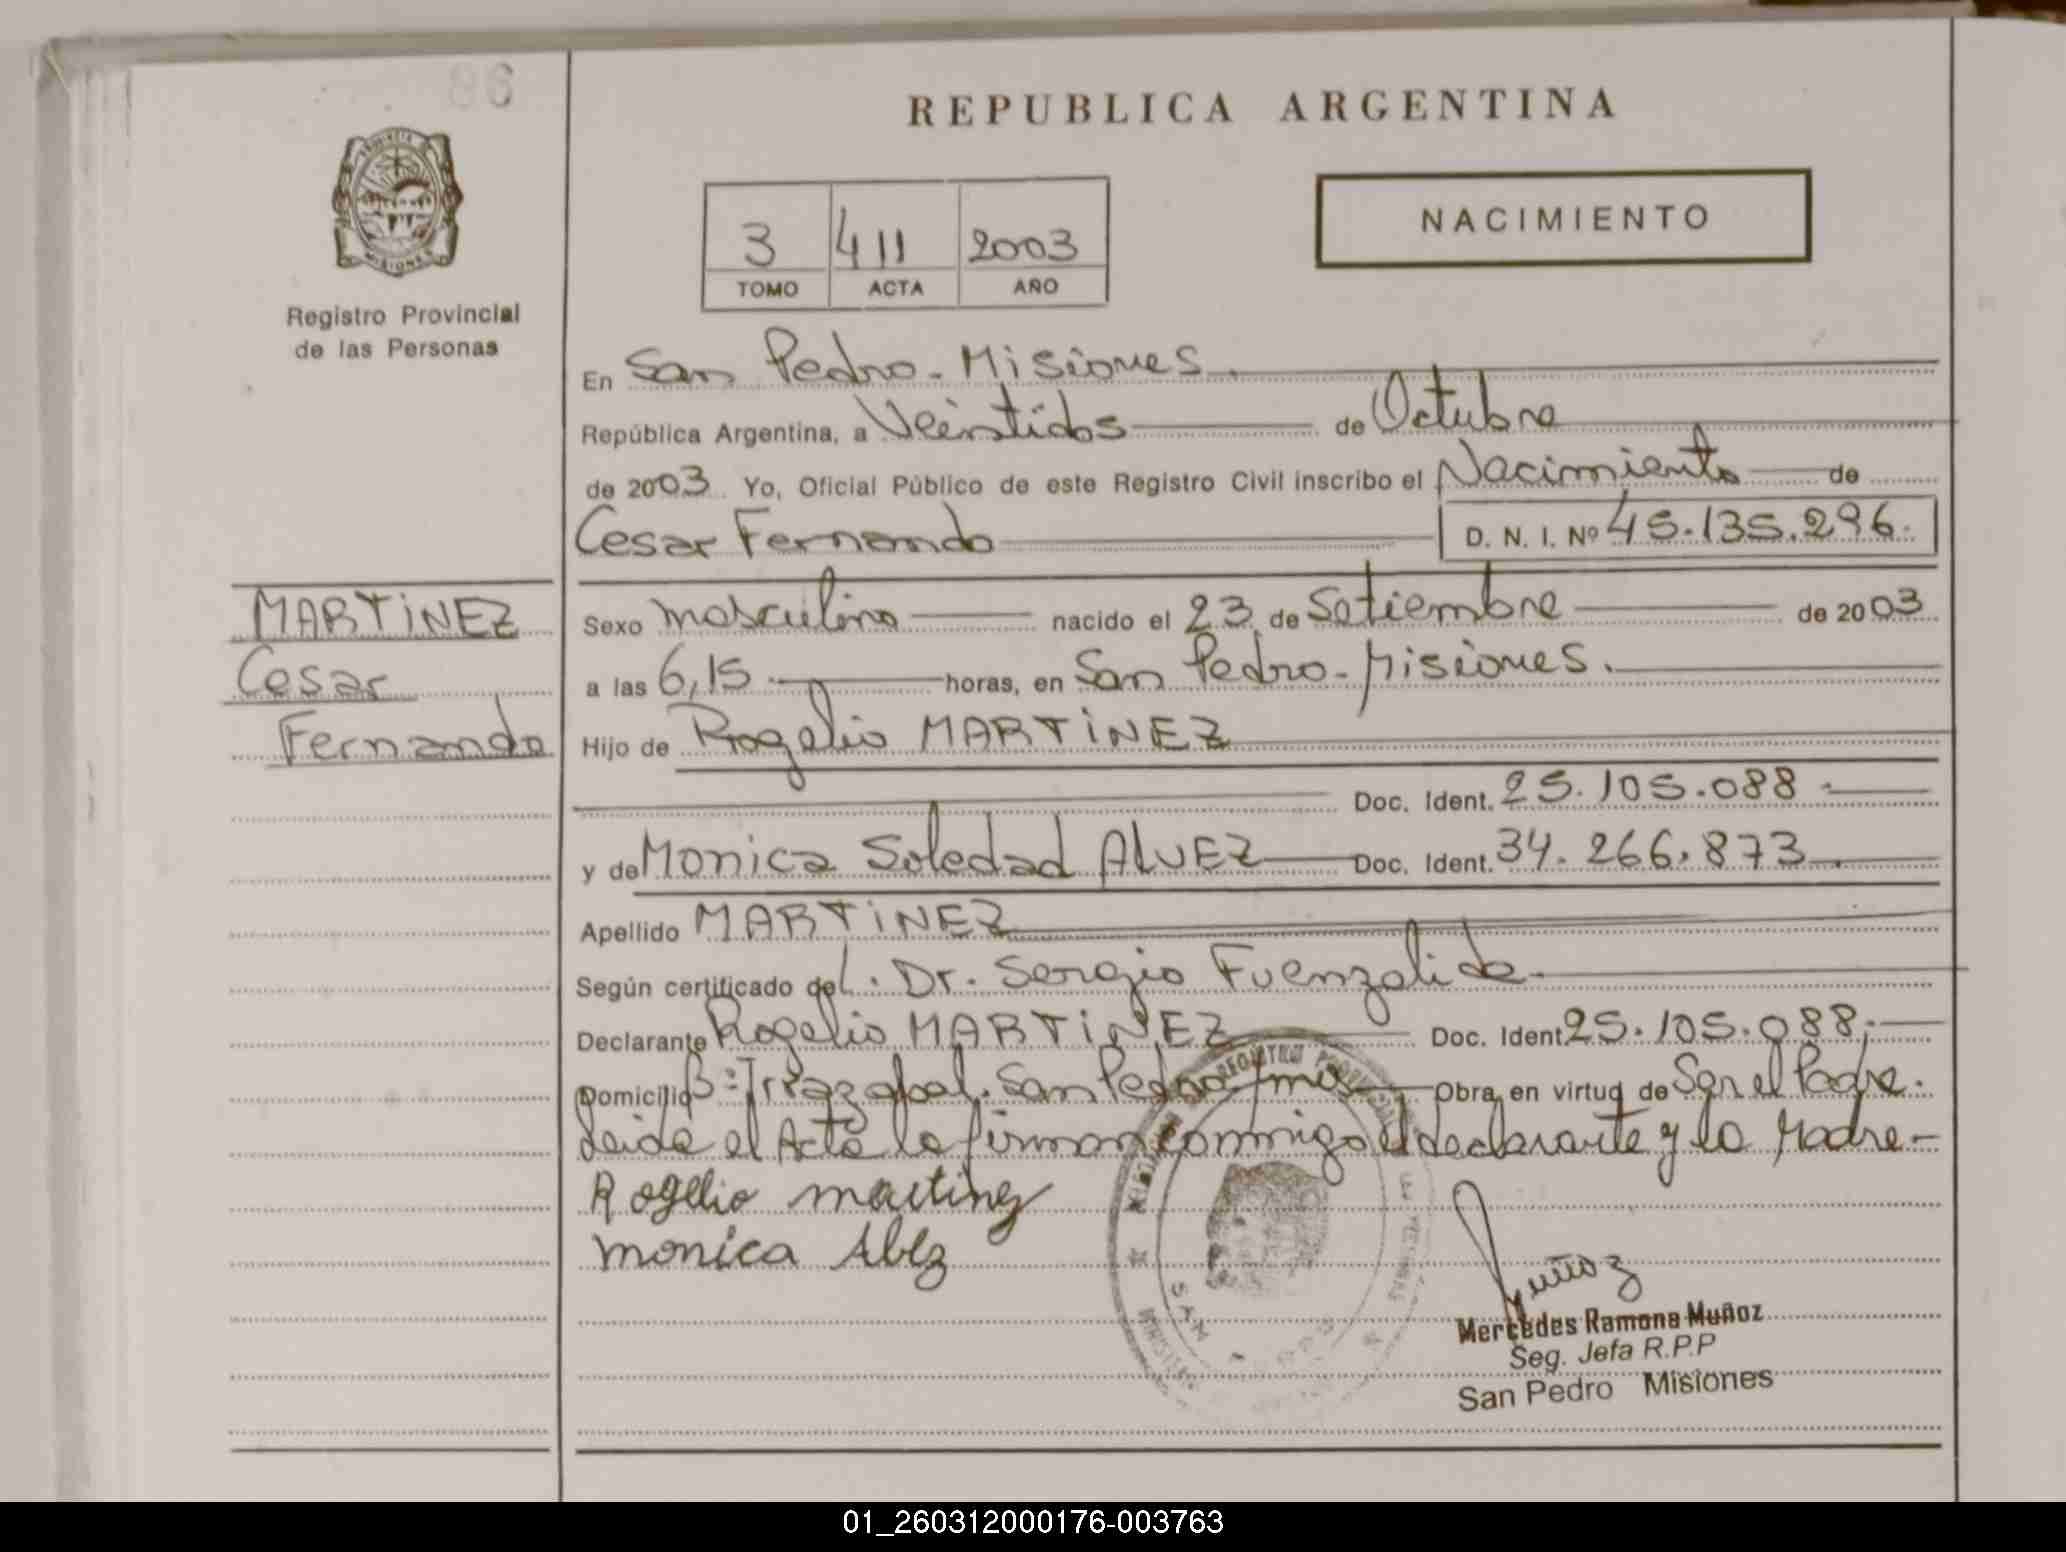 86
REPUBLICA ARGENTINA
PROVINCIA DE
MISIONES
Registro Provincial
de las Personas
3 411 2003
TOMO ACTA AÑO
NACIMIENTO
En San Pedro - Misiones.
República Argentina, a Veintidos de Octubre
de 2003 Yo, Oficial Público de este Registro Civil inscribo el Nacimiento de
Cesar Fernando D. N. I. Nº 45.135.296.
MARTINEZ
Cesar
Fernando
Sexo masculino nacido el 23 de Setiembre de 2003
a las 6,15 horas, en San Pedro - Misiones.
Hijo de Rogelio MARTINEZ
Doc. Ident. 25.105.088
y de Monica Soledad ALVEZ Doc. Ident. 34.266.873
Apellido MARTINEZ
Según certificado del. Dr. Sergio Fuenzalida
Declarante Rogelio MARTINEZ Doc. Ident. 25.105.088.
Domicilio Bº Irrazabal. San Pedro - Obra en virtud de Ser el Padre.
Leida el Acta la firman conmigo el declarante y la Madre -
Rogelio martinez
monica
SAN
Muñoz
Mercedes Ramona Muñoz
Seg. Jefa R.P.P
San Pedro Misiones
01_260312000176-003763